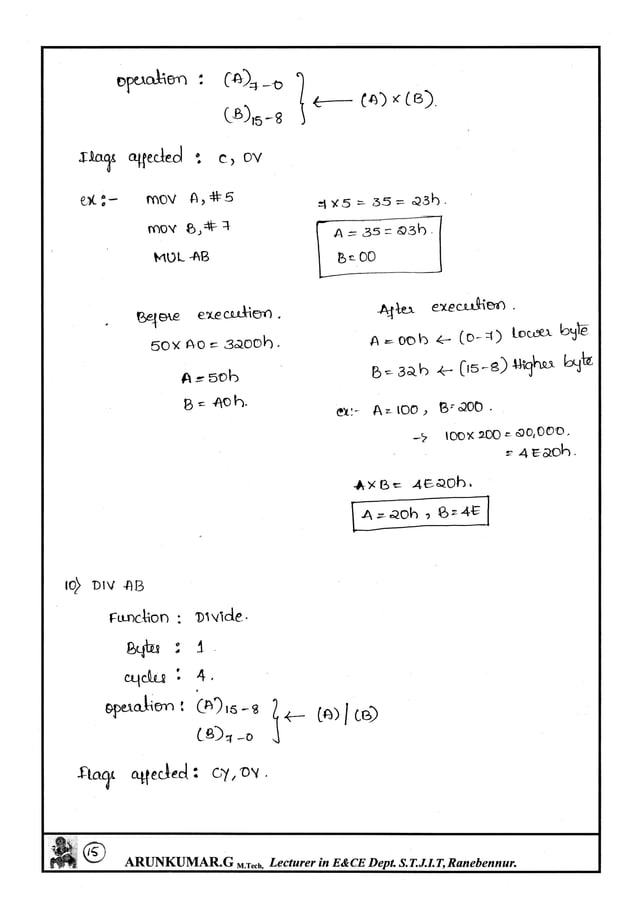 operation : (A)7-0
(B)15-8
← (A) × (B).
Flags affected : C, OV
ex:- MOV A, #5
MOV B, #7
MUL AB
7 × 5 = 35 = 23h.
A = 35 = 23h.
B = 00
Before execution.
50 × A0 = 3200h.
A = 50h
B = A0h.
After execution.
A = 00h ← (0-7) Lower byte
B = 32h ← (15-8) Higher byte
ex:- A = 100, B = 200.
→ 100 × 200 = 20,000.
= 4E20h.
A × B = 4E20h.
A = 20h, B = 4E
10) DIV AB
Function : Divide.
Bytes : 1
cycles : 4.
operation : (A)15-8
(B)7-0
← (A) | (B)
Flags affected : CY, OV.
15
ARUNKUMAR.G M.Tech, Lecturer in E&CE Dept. S.T.J.I.T, Ranebennur.